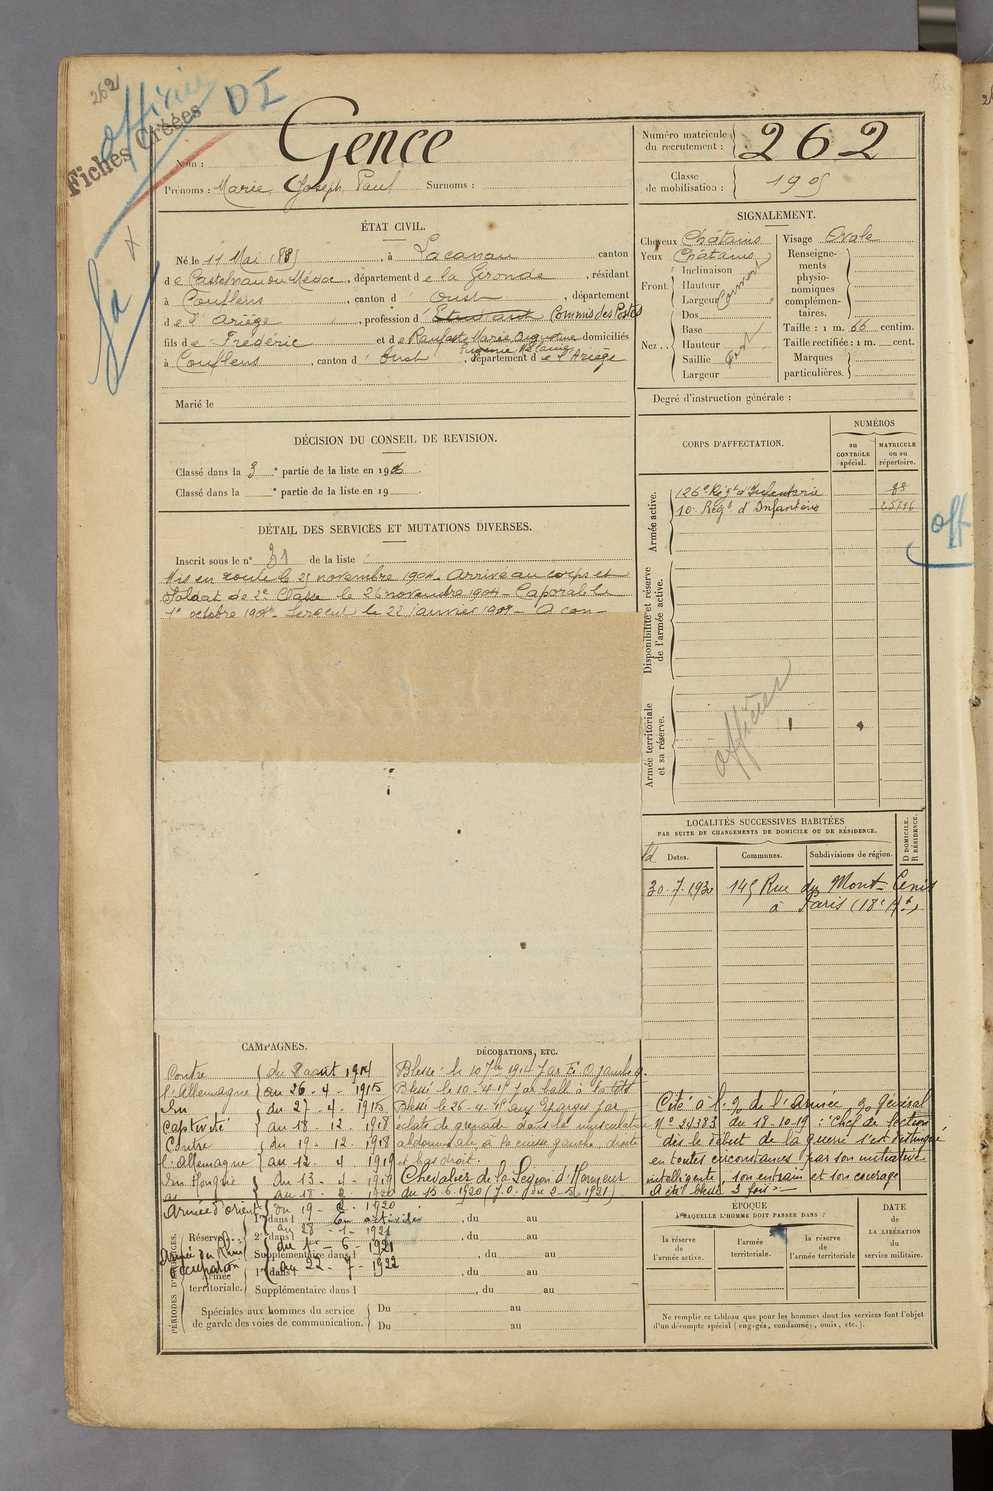 262
officier
D I
Fiches Créées
Nom : Gence
Prénoms : Marie, Joseph, Paul Surnoms :
Numéro matricule du recrutement : 262
Classe de mobilisation : 1905
ÉTAT CIVIL.
Né le 11 Mai 1885, à Lacanau canton
de Castelnau du Médoc, département de la Gironde, résidant
à Couflens, canton d' Oust, département
de l'Ariège, profession d' Etudiant Commis des Postes
fils de Frédéric et de Marie domiciliés
à Couflens, canton d' Oust, département de l'Ariège
Marié le
SIGNALEMENT.
Cheveux Châtains
Yeux Châtains
Front. Inclinaison
Hauteur
Largeur
Nez.. Dos
Base
Hauteur
Saillie
Largeur
Visage Ovale
Renseignements physionomiques complémentaires.
Taille : 1 m. 66 centim.
Taille rectifiée : 1 m. cent.
Marques particulières.
Degré d'instruction générale :
DÉCISION DU CONSEIL DE REVISION.
Classé dans la 3e partie de la liste en 1906.
Classé dans la e partie de la liste en 19
DÉTAIL DES SERVICES ET MUTATIONS DIVERSES.
Inscrit sous le n° 31 de la liste
Mis en route le 25 novembre 1904. Arrivé au corps et
Soldat de 2e Classe le 26 novembre 1904 - Caporal le
1er octobre 190 . Sergent le 22 janvier 190 - A con-
CORPS D'AFFECTATION.
NUMÉROS
au CONTRÔLE spécial.
MATRICULE ou au répertoire.
Armée active.
126e Régt d'Infanterie
10e Régt d'Infanterie
off
Disponibilité et réserve de l'armée active.
Armée territoriale et sa réserve.
officier
LOCALITÉS SUCCESSIVES HABITÉES
PAR SUITE DE CHANGEMENTS DE DOMICILE OU DE RÉSIDENCE.
Dates. Communes. Subdivisions de région. D DOMICILE. R RÉSIDENCE.
30.7.1930 145 Rue du Mont-Cenis
à Paris (18e Art)
CAMPAGNES.
Contre du 2 août 1914
l'Allemagne au 26-4-1915
En du 27-4-1915
Captivité au 18.12.1918
Contre du 19.12.1918
l'Allemagne au 12.4.1919
En Hongrie du 13.4.1919
au 18.2.1920
Armée d'orient du 19-2-1920
au 28-1-1921
Armée du Rhin du 1er-6-1921
Occupation au 22-7-1922
DÉCORATIONS, ETC.
Blessé le 10 7bre 1914 par E. O. jambe g.
Blessé le 10-4-15 par balle à la tête
Blessé le 26-4-15 aux Eparges par
éclats de grenade dans la musculature
abdominale, à la cuisse gauche, droite
et bas droit.
Chevalier de la Légion d'Honneur
du 15.6.1920 (J.O. du 2-2-1921)
Cité à l'o/ de l'Armée, o/ général
N° 24383 du 18-10-19 : Chef de section
dès le début de la guerre s'est distingué
en toutes circonstances par son initiative
intelligente, son entrain et son courage
A été blessé 3 fois.
PÉRIODES D'EXERCICES.
Réserve.
1re dans l En activité, du au
2e dans l , du au
Supplémentaire dans l , du au
Armée territoriale.
1re dans l , du au
Supplémentaire dans l , du au
Spéciales aux hommes du service de garde des voies de communication.
Du au
Du au
ÉPOQUE
À LAQUELLE L'HOMME DOIT PASSER DANS :
la réserve de l'armée active.
l'armée territoriale.
la réserve de l'armée territoriale
DATE DE LA LIBÉRATION du service militaire.
Ne remplir ce tableau que pour les hommes dont les services font l'objet
d'un décompte spécial (engagés, condamnés, omis, etc.).